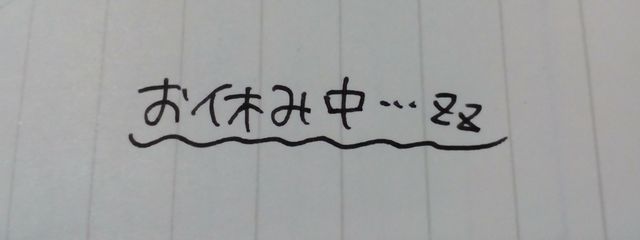 お休み中…zz